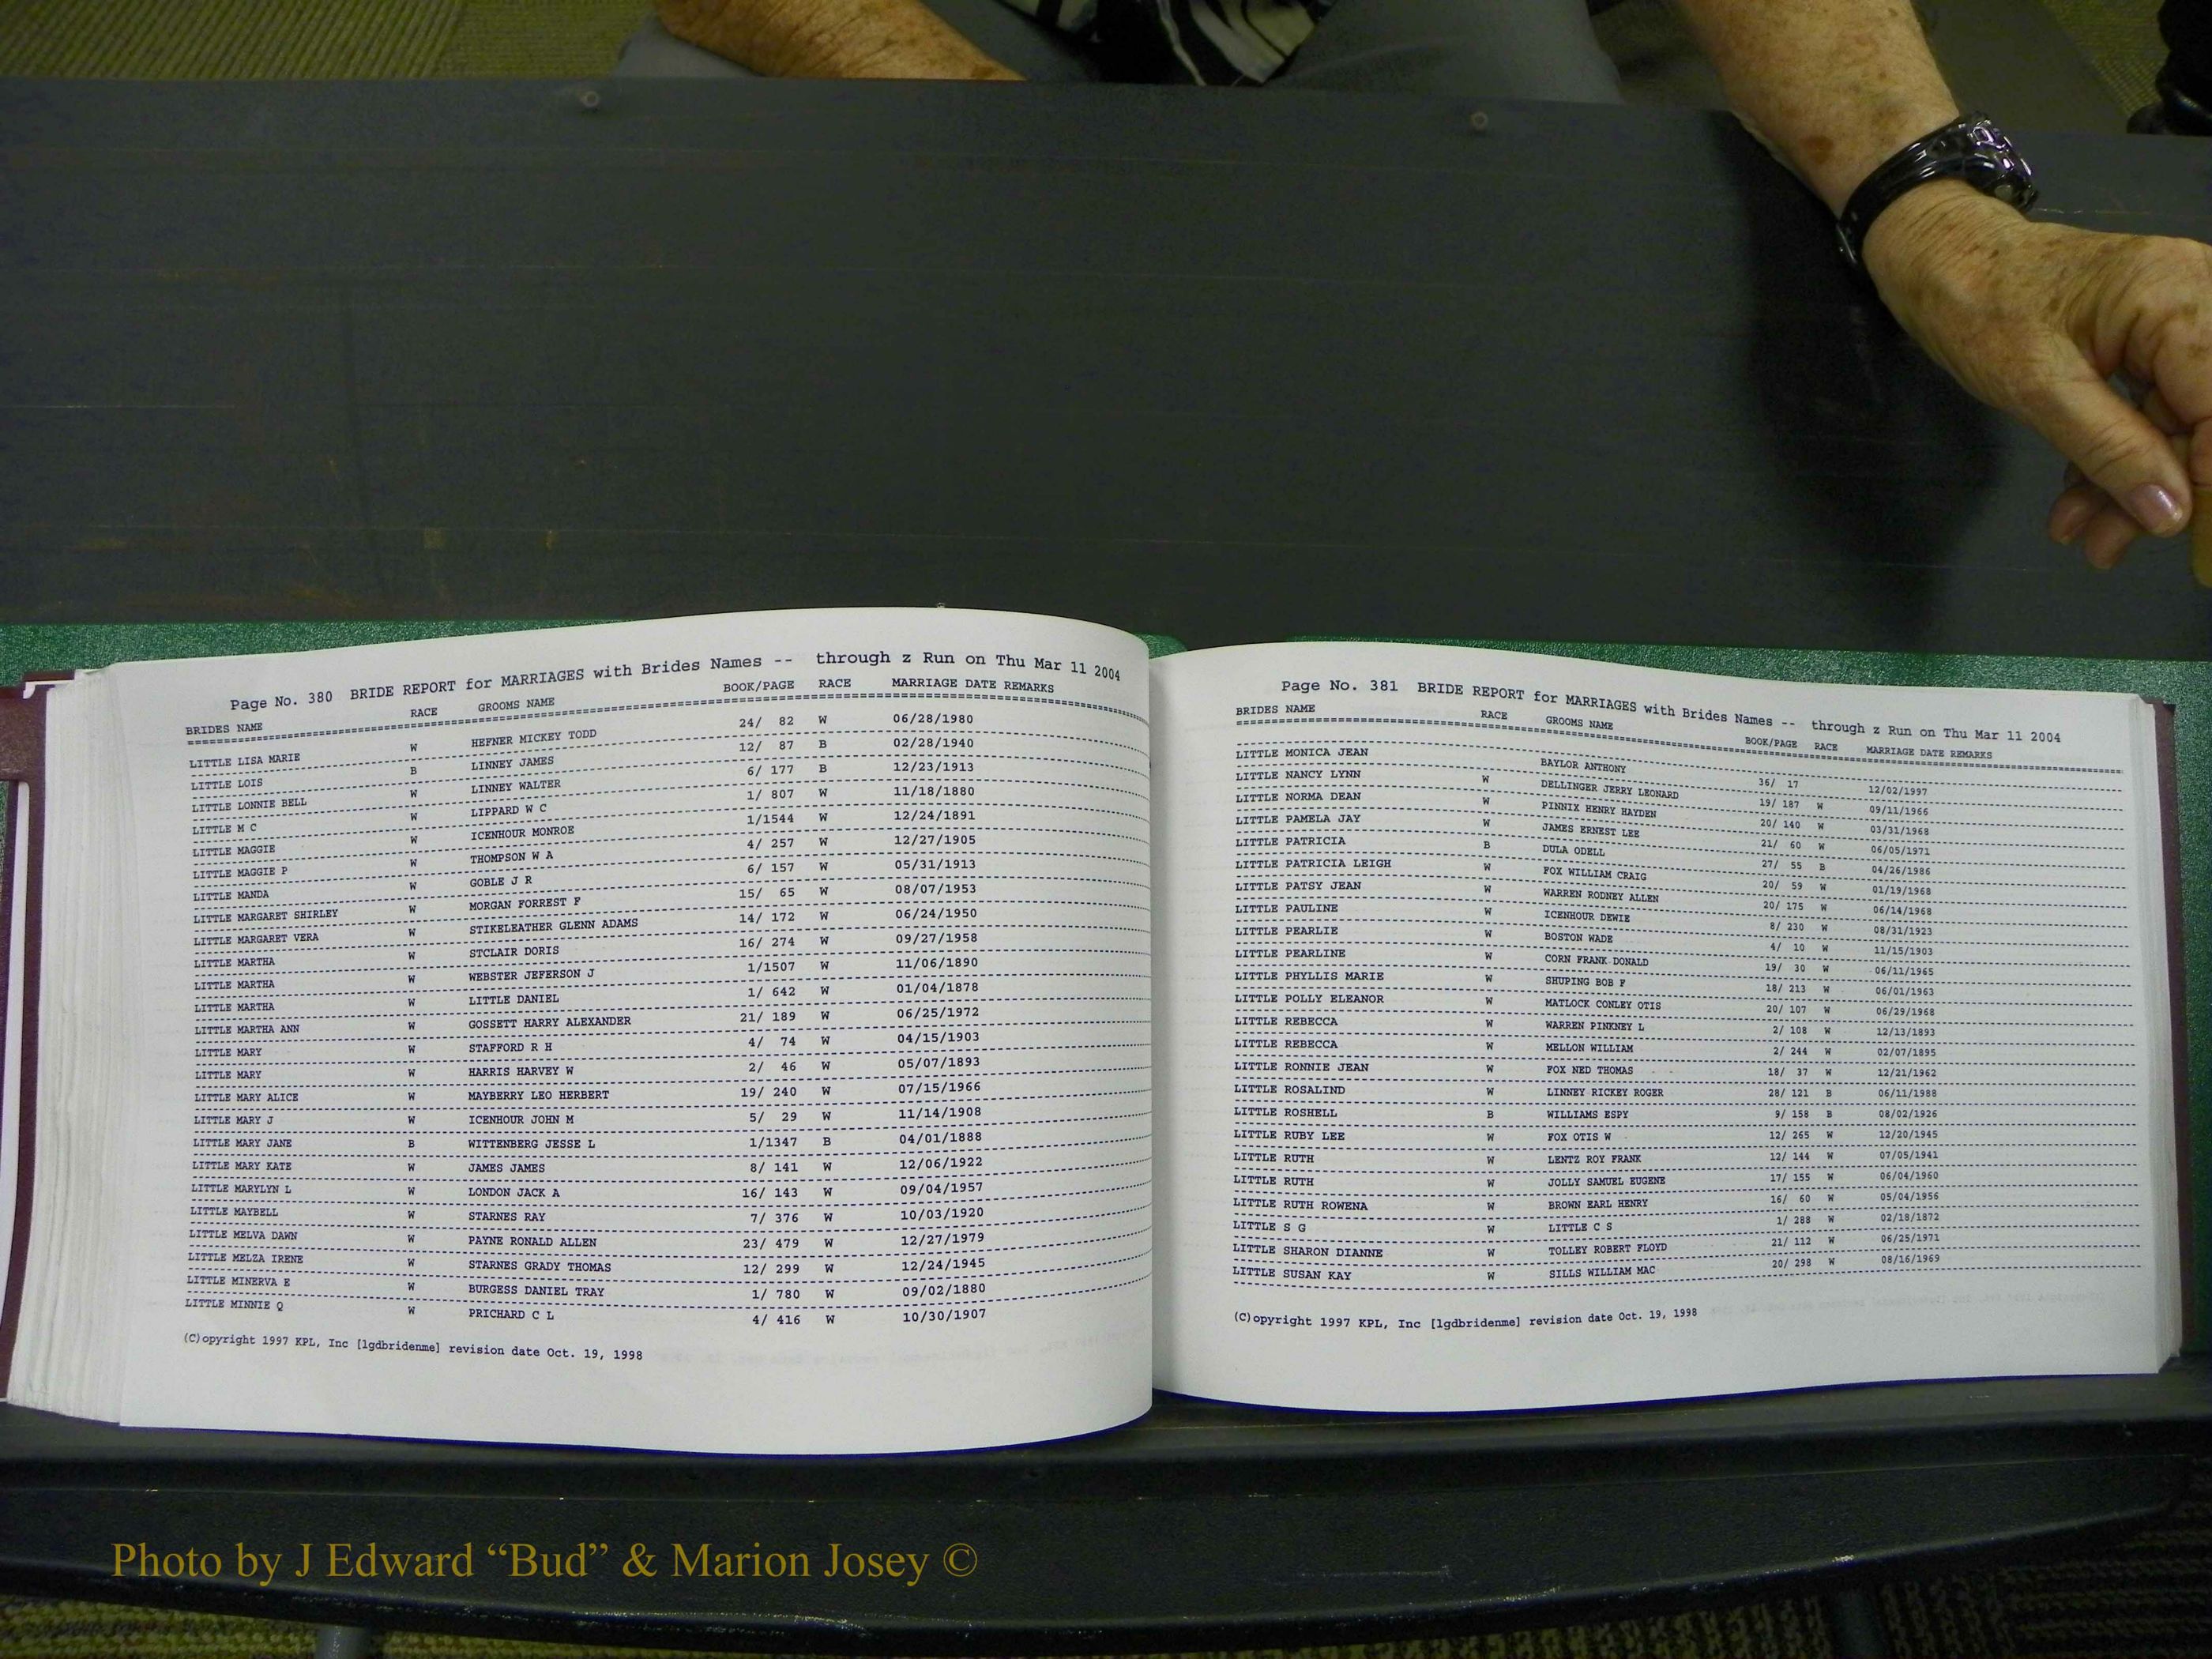 Page No. 380 BRIDE REPORT for MARRIAGES with Brides Names -- through z Run on Thu Mar 11 2004
BRIDES NAME RACE GROOMS NAME BOOK/PAGE RACE MARRIAGE DATE REMARKS
LITTLE LISA MARIE W HEFNER MICKEY TODD 24/ 82 W 06/28/1980
LITTLE LOIS B LINNEY JAMES 12/ 87 B 02/28/1940
LITTLE LONNIE BELL W LINNEY WALTER 6/ 177 B 12/23/1913
LITTLE M C W LIPPARD W C 1/ 807 W 11/18/1880
LITTLE MAGGIE W ICENHOUR MONROE 1/1544 W 12/24/1891
LITTLE MAGGIE P W THOMPSON W A 4/ 257 W 12/27/1905
LITTLE MANDA W GOBLE J R 6/ 157 W 05/31/1913
LITTLE MARGARET SHIRLEY W MORGAN FORREST F 15/ 65 W 08/07/1953
LITTLE MARGARET VERA W STIKELEATHER GLENN ADAMS 14/ 172 W 06/24/1950
LITTLE MARTHA W STCLAIR DORIS 16/ 274 W 09/27/1958
LITTLE MARTHA W WEBSTER JEFERSON J 1/1507 W 11/06/1890
LITTLE MARTHA W LITTLE DANIEL 1/ 642 W 01/04/1878
LITTLE MARTHA ANN W GOSSETT HARRY ALEXANDER 21/ 189 W 06/25/1972
LITTLE MARY W STAFFORD R H 4/ 74 W 04/15/1903
LITTLE MARY W HARRIS HARVEY W 2/ 46 W 05/07/1893
LITTLE MARY ALICE W MAYBERRY LEO HERBERT 19/ 240 W 07/15/1966
LITTLE MARY J W ICENHOUR JOHN M 5/ 29 W 11/14/1908
LITTLE MARY JANE B WITTENBERG JESSE L 1/1347 B 04/01/1888
LITTLE MARY KATE W JAMES JAMES 8/ 141 W 12/06/1922
LITTLE MARYLYN L W LONDON JACK A 16/ 143 W 09/04/1957
LITTLE MAYBELL W STARNES RAY 7/ 376 W 10/03/1920
LITTLE MELVA DAWN W PAYNE RONALD ALLEN 23/ 479 W 12/27/1979
LITTLE MELZA IRENE W STARNES GRADY THOMAS 12/ 299 W 12/24/1945
LITTLE MINERVA E W BURGESS DANIEL TRAY 1/ 780 W 09/02/1880
LITTLE MINNIE Q W PRICHARD C L 4/ 416 W 10/30/1907
(C)opyright 1997 KPL, Inc [lgdbridenme] revision date Oct. 19, 1998
Page No. 381 BRIDE REPORT for MARRIAGES with Brides Names -- through z Run on Thu Mar 11 2004
BRIDES NAME RACE GROOMS NAME BOOK/PAGE RACE MARRIAGE DATE REMARKS
LITTLE MONICA JEAN BAYLOR ANTHONY 36/ 17 12/02/1997
LITTLE NANCY LYNN W DELLINGER JERRY LEONARD 19/ 187 W 09/11/1966
LITTLE NORMA DEAN W PINNIX HENRY HAYDEN 20/ 140 W 03/31/1968
LITTLE PAMELA JAY W JAMES ERNEST LEE 21/ 60 W 06/05/1971
LITTLE PATRICIA B DULA ODELL 27/ 55 B 04/26/1986
LITTLE PATRICIA LEIGH W FOX WILLIAM CRAIG 20/ 59 W 01/19/1968
LITTLE PATSY JEAN W WARREN RODNEY ALLEN 20/ 175 W 06/14/1968
LITTLE PAULINE W ICENHOUR DEWIE 8/ 230 W 08/31/1923
LITTLE PEARLIE W BOSTON WADE 4/ 10 W 11/15/1903
LITTLE PEARLINE W CORN FRANK DONALD 19/ 30 W 06/11/1965
LITTLE PHYLLIS MARIE W SHUPING BOB F 18/ 213 W 06/01/1963
LITTLE POLLY ELEANOR W MATLOCK CONLEY OTIS 20/ 107 W 06/29/1968
LITTLE REBECCA W WARREN PINKNEY L 2/ 108 W 12/13/1893
LITTLE REBECCA W MELLON WILLIAM 2/ 244 W 02/07/1895
LITTLE RONNIE JEAN W FOX NED THOMAS 18/ 37 W 12/21/1962
LITTLE ROSALIND W LINNEY RICKEY ROGER 28/ 121 B 06/11/1988
LITTLE ROSHELL B WILLIAMS ESPY 9/ 158 B 08/02/1926
LITTLE RUBY LEE W FOX OTIS W 12/ 265 W 12/20/1945
LITTLE RUTH W LENTZ ROY FRANK 12/ 144 W 07/05/1941
LITTLE RUTH W JOLLY SAMUEL EUGENE 17/ 155 W 06/04/1960
LITTLE RUTH ROWENA W BROWN EARL HENRY 16/ 60 W 05/04/1956
LITTLE S G W LITTLE C S 1/ 288 W 02/18/1872
LITTLE SHARON DIANNE W TOLLEY ROBERT FLOYD 21/ 112 W 06/25/1971
LITTLE SUSAN KAY W SILLS WILLIAM MAC 20/ 298 W 08/16/1969
(C)opyright 1997 KPL, Inc [lgdbridenme] revision date Oct. 19, 1998
Photo by J Edward “Bud” & Marion Josey ©